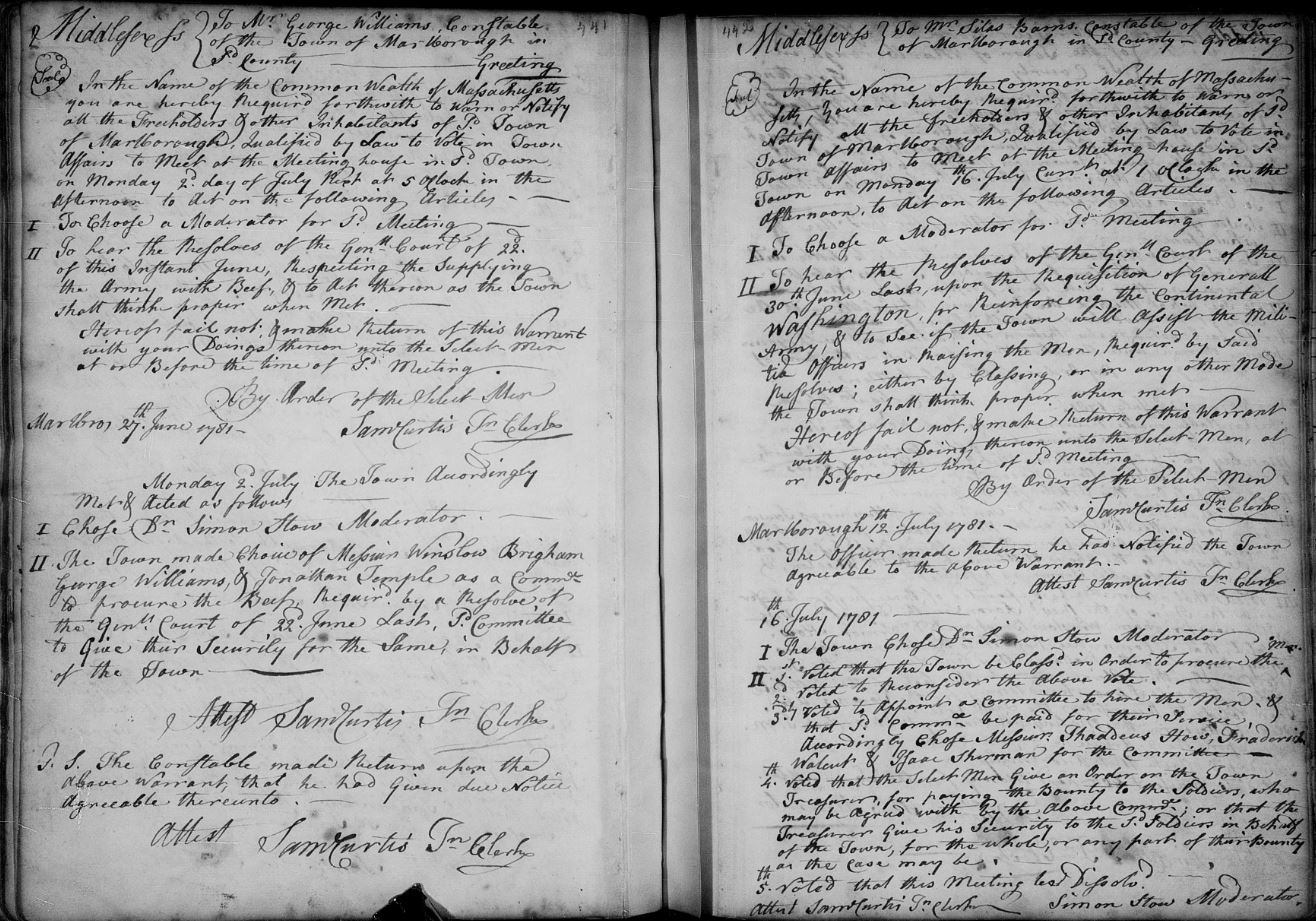 441
2 Middlesex ss { To Mr. George Williams, Constable
of the Town of Marlborough in
Sd. County — Greeting
Seal
In the Name of the Common Wealth of Massachusetts
you are hereby Requird forthwith to warn or Notify
all the Freeholders & other Inhabitants of Sd. Town
of Marlborough, Qualified by Law to Vote in Town
Affairs to Meet at the Meeting house in Sd. Town
on Monday 2d. day of July Next at 5 oClock in the
afternoon to Act on the following Articles. —
I To Choose a Moderator for Sd. Meeting —
II To hear the Resolves of the Genll. Court of 22d.
of this Instant June, Respecting the Supplying
the Army with Beef, & to Act thereon as the Town
shall think proper when Met. —
Hereof fail not, & make Return of this Warrant
with your Doings thereon unto the Select-Men
at or Before the time of Sd. Meeting.
By Order of the Select Men
Marlbro, 27th. June 1781 — Saml Curtis Tn Clerke
Monday 2d. July The Town Accordingly
Met & Acted as follows —
I Chose Dn Simon Stow Moderator. —
II The Town made Choice of Messieurs Winslow Brigham
George Williams, & Jonathan Temple as a Commte
to procure the Beef, Requird. by a Resolve of
the Ginll Court of 22d. June Last, Sd. Committee
to Give their Security for the Same, in Behalf
of the Town —
Attest Saml Curtis Tn Clerke
P. S. The Constable made Return upon the
above Warrant, that he had Given due Notice
Agreeable thereunto. —
Attest Saml Curtis Tn Clerke
442
Middlesex ss { To Mr. Silas Barns, Constable of the Town
of Marlborough in Sd. County — Greeting
Seal
In the Name of the Common Wealth of Massachu-
setts, you are hereby Requird. forthwith to warn or
Notify all the Freeholders & other Inhabitants of Sd.
Town of Marlborough, Qualified by Law to Vote in
Town Affairs to Meet at the Meeting house in Sd.
Town on Monday 16th. July Currt. at 1 oClock in the
afternoon, to Act on the following Articles. —
I To Choose a Moderator for Sd. Meeting
II To hear the Resolves of the Genll Court of the
30th. June Last, upon the Requisition of Generall
Washington, for Reinforcing the Continental
Army, & to See if the Town will Assist the Mili-
tia Officers in Raising the Men, Requird. by Said
Resolves; either by Classing, or in any other Mode
the Town shall think proper when met —
Hereof fail not, & make Return of this Warrant
with your Doings thereon unto the Select-Men, at
or Before the time of Sd. Meeting —
By Order of the Select-Men
Saml Curtis Tn Clerke
Marlborough 12th. July 1781. —
The Officer made Return he has Notified the Town
agreeable to the Above Warrant. —
Attest Saml Curtis Tn Clerke
16th. July 1781 —
I The Town Chose Dn. Simon Stow Moderator
II 1st. Voted that the Town be Classd. in Order to procure the Men.
2d. Voted to Reconsider the Above Vote. —
3dly. Voted to Appoint a Committee to hire the Men. &
that Sd. Commte be paid for their Service,
Accordingly Chose Messieurs. Thaddeus How, Fraderick
Walcut & Isaac Sherman for the Committee —
4th. Voted that the Select Men Give an Order on the Town
Treasurer, for paying the Bounty to the Soldiers, who
may be Agred with by the Above Commte; or that the
Treasurer Give his Security to the Sd. Soldiers in Behalf
of the Town, for the whole, or any part of their Bounty
as the Case may be.
5th. Voted that this Meeting be Dissolvd.
Attest Saml Curtis Tn Clerke Simon Stow Moderator.